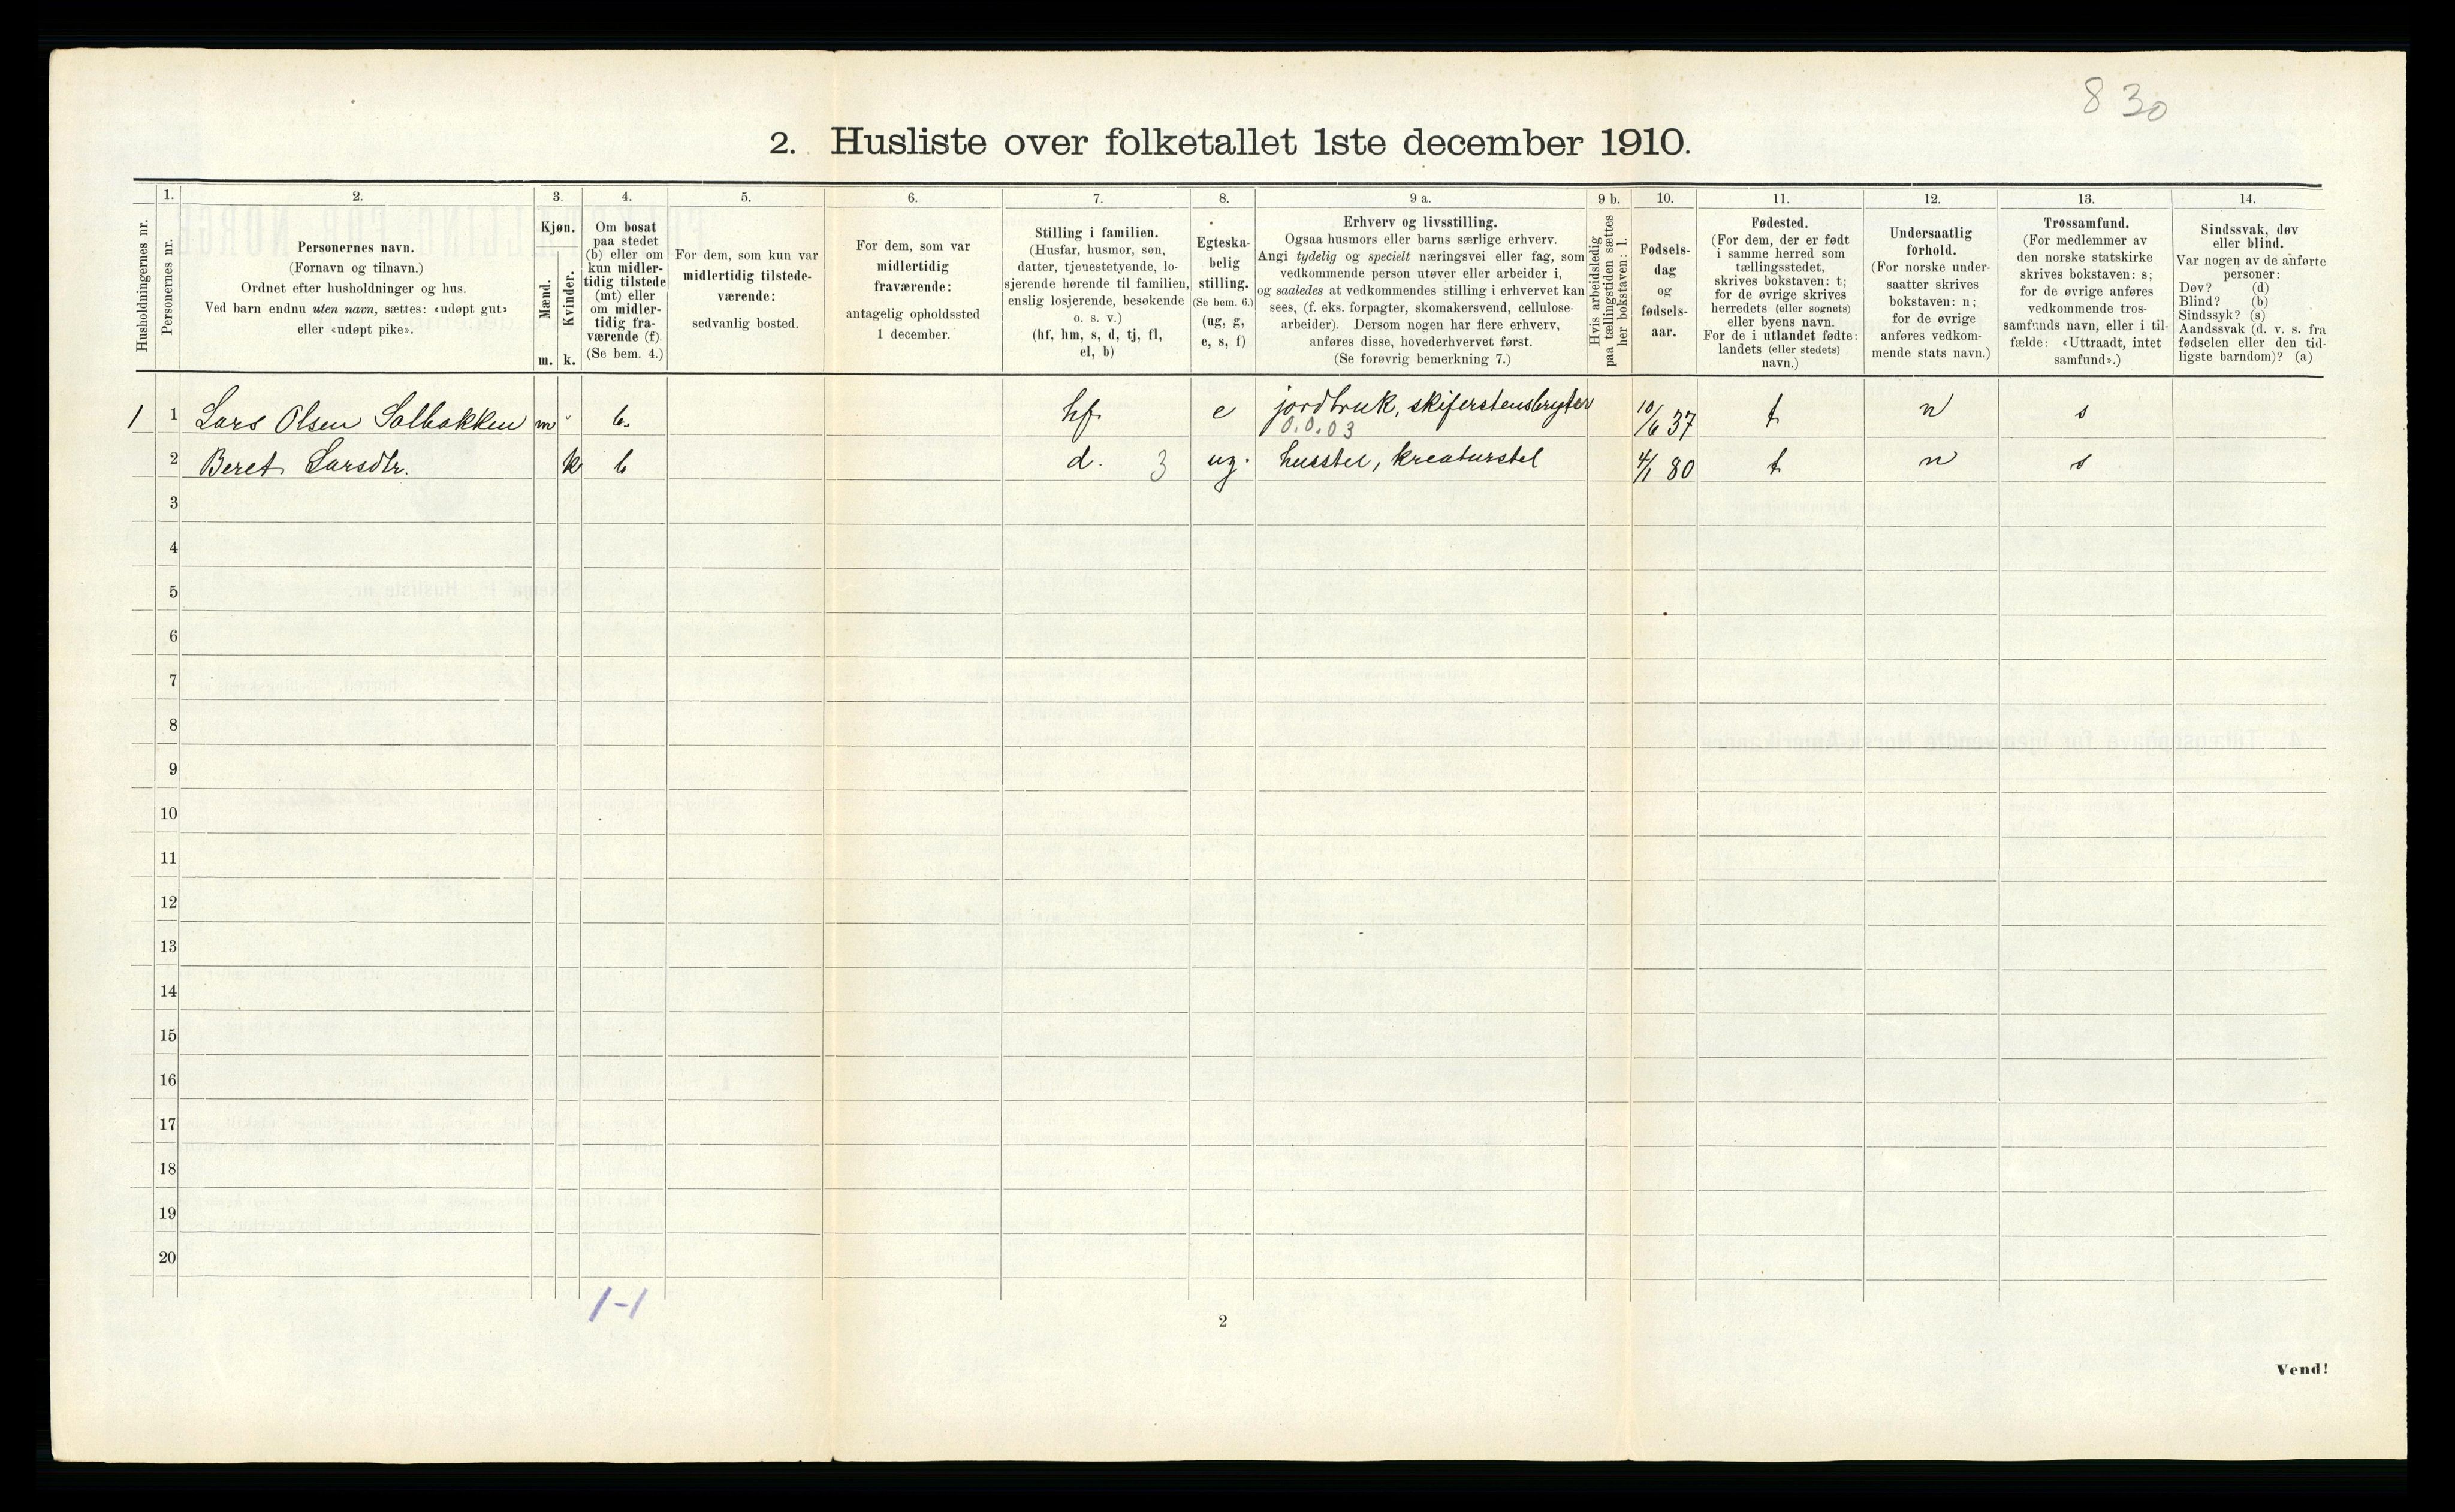 8 30
2. Husliste over folketallet 1ste december 1910.
Husholdningernes nr.
1.
Personernes nr.
2.
Personernes navn.
(Fornavn og tilnavn.)
Ordnet efter husholdninger og hus.
Ved barn endnu uten navn, sættes: «udøpt gut»
eller «udøpt pike».
3.
Kjøn.
Mænd.
Kvinder.
m. k.
4.
Om bosat
paa stedet
(b) eller om
kun midler-
tidig tilstede
(mt) eller
om midler-
tidig fra-
værende (f).
(Se bem. 4.)
5.
For dem, som kun var
midlertidig tilstede-
værende:
sedvanlig bosted.
6.
For dem, som var
midlertidig
fraværende:
antagelig opholdssted
1 december.
7.
Stilling i familien.
(Husfar, husmor, søn,
datter, tjenestetyende, lo-
sjerende hørende til familien,
enslig losjerende, besøkende
o. s. v.)
(hf, hm, s, d, tj, fl,
el, b)
8.
Egteska-
belig
stilling.
(Se bem. 6.)
(ug, g,
e, s, f)
9 a.
Erhverv og livsstilling.
Ogsaa husmors eller barns særlige erhverv.
Angi tydelig og specielt næringsvei eller fag, som
vedkommende person utøver eller arbeider i,
og saaledes at vedkommendes stilling i erhvervet kan
sees, (f. eks. forpagter, skomakersvend, cellulose-
arbeider). Dersom nogen har flere erhverv,
anføres disse, hovederhvervet først.
(Se forøvrig bemerkning 7.)
9 b.
Hvis arbeidsledig
paa tællingstiden sættes
her bokstaven: l.
10.
Fødsels-
dag
og
fødsels-
aar.
11.
Fødested.
(For dem, der er født
i samme herred som
tællingsstedet,
skrives bokstaven: t;
for de øvrige skrives
herredets (eller sognets)
eller byens navn.
For de i utlandet fødte:
landets (eller stedets)
navn.)
12.
Undersaatlig
forhold.
(For norske under-
saatter skrives
bokstaven: n;
for de øvrige
anføres vedkom-
mende stats navn.)
13.
Trossamfund.
(For medlemmer av
den norske statskirke
skrives bokstaven: s;
for de øvrige anføres
vedkommende tros-
samfunds navn, eller i til-
fælde: «Uttraadt, intet
samfund».)
14.
Sindssvak, døv
eller blind.
Var nogen av de anførte
personer:
Døv? (d)
Blind? (b)
Sindssyk? (s)
Aandssvak (d. v. s. fra
fødselen eller den tid-
ligste barndom)? (a)
1 1 Lars Olsen Solbakken m b. hf. e jordbruk, skiferstensbryter 10/6 37 t n s
0.0.03
2 Beret Larsdtr. k b d. 3 ug. husstel, kreaturstel 4/1 80 t n s
3
4
5
6
7
8
9
10
11
12
13
14
15
16
17
18
19
20
1-1
2
Vend!